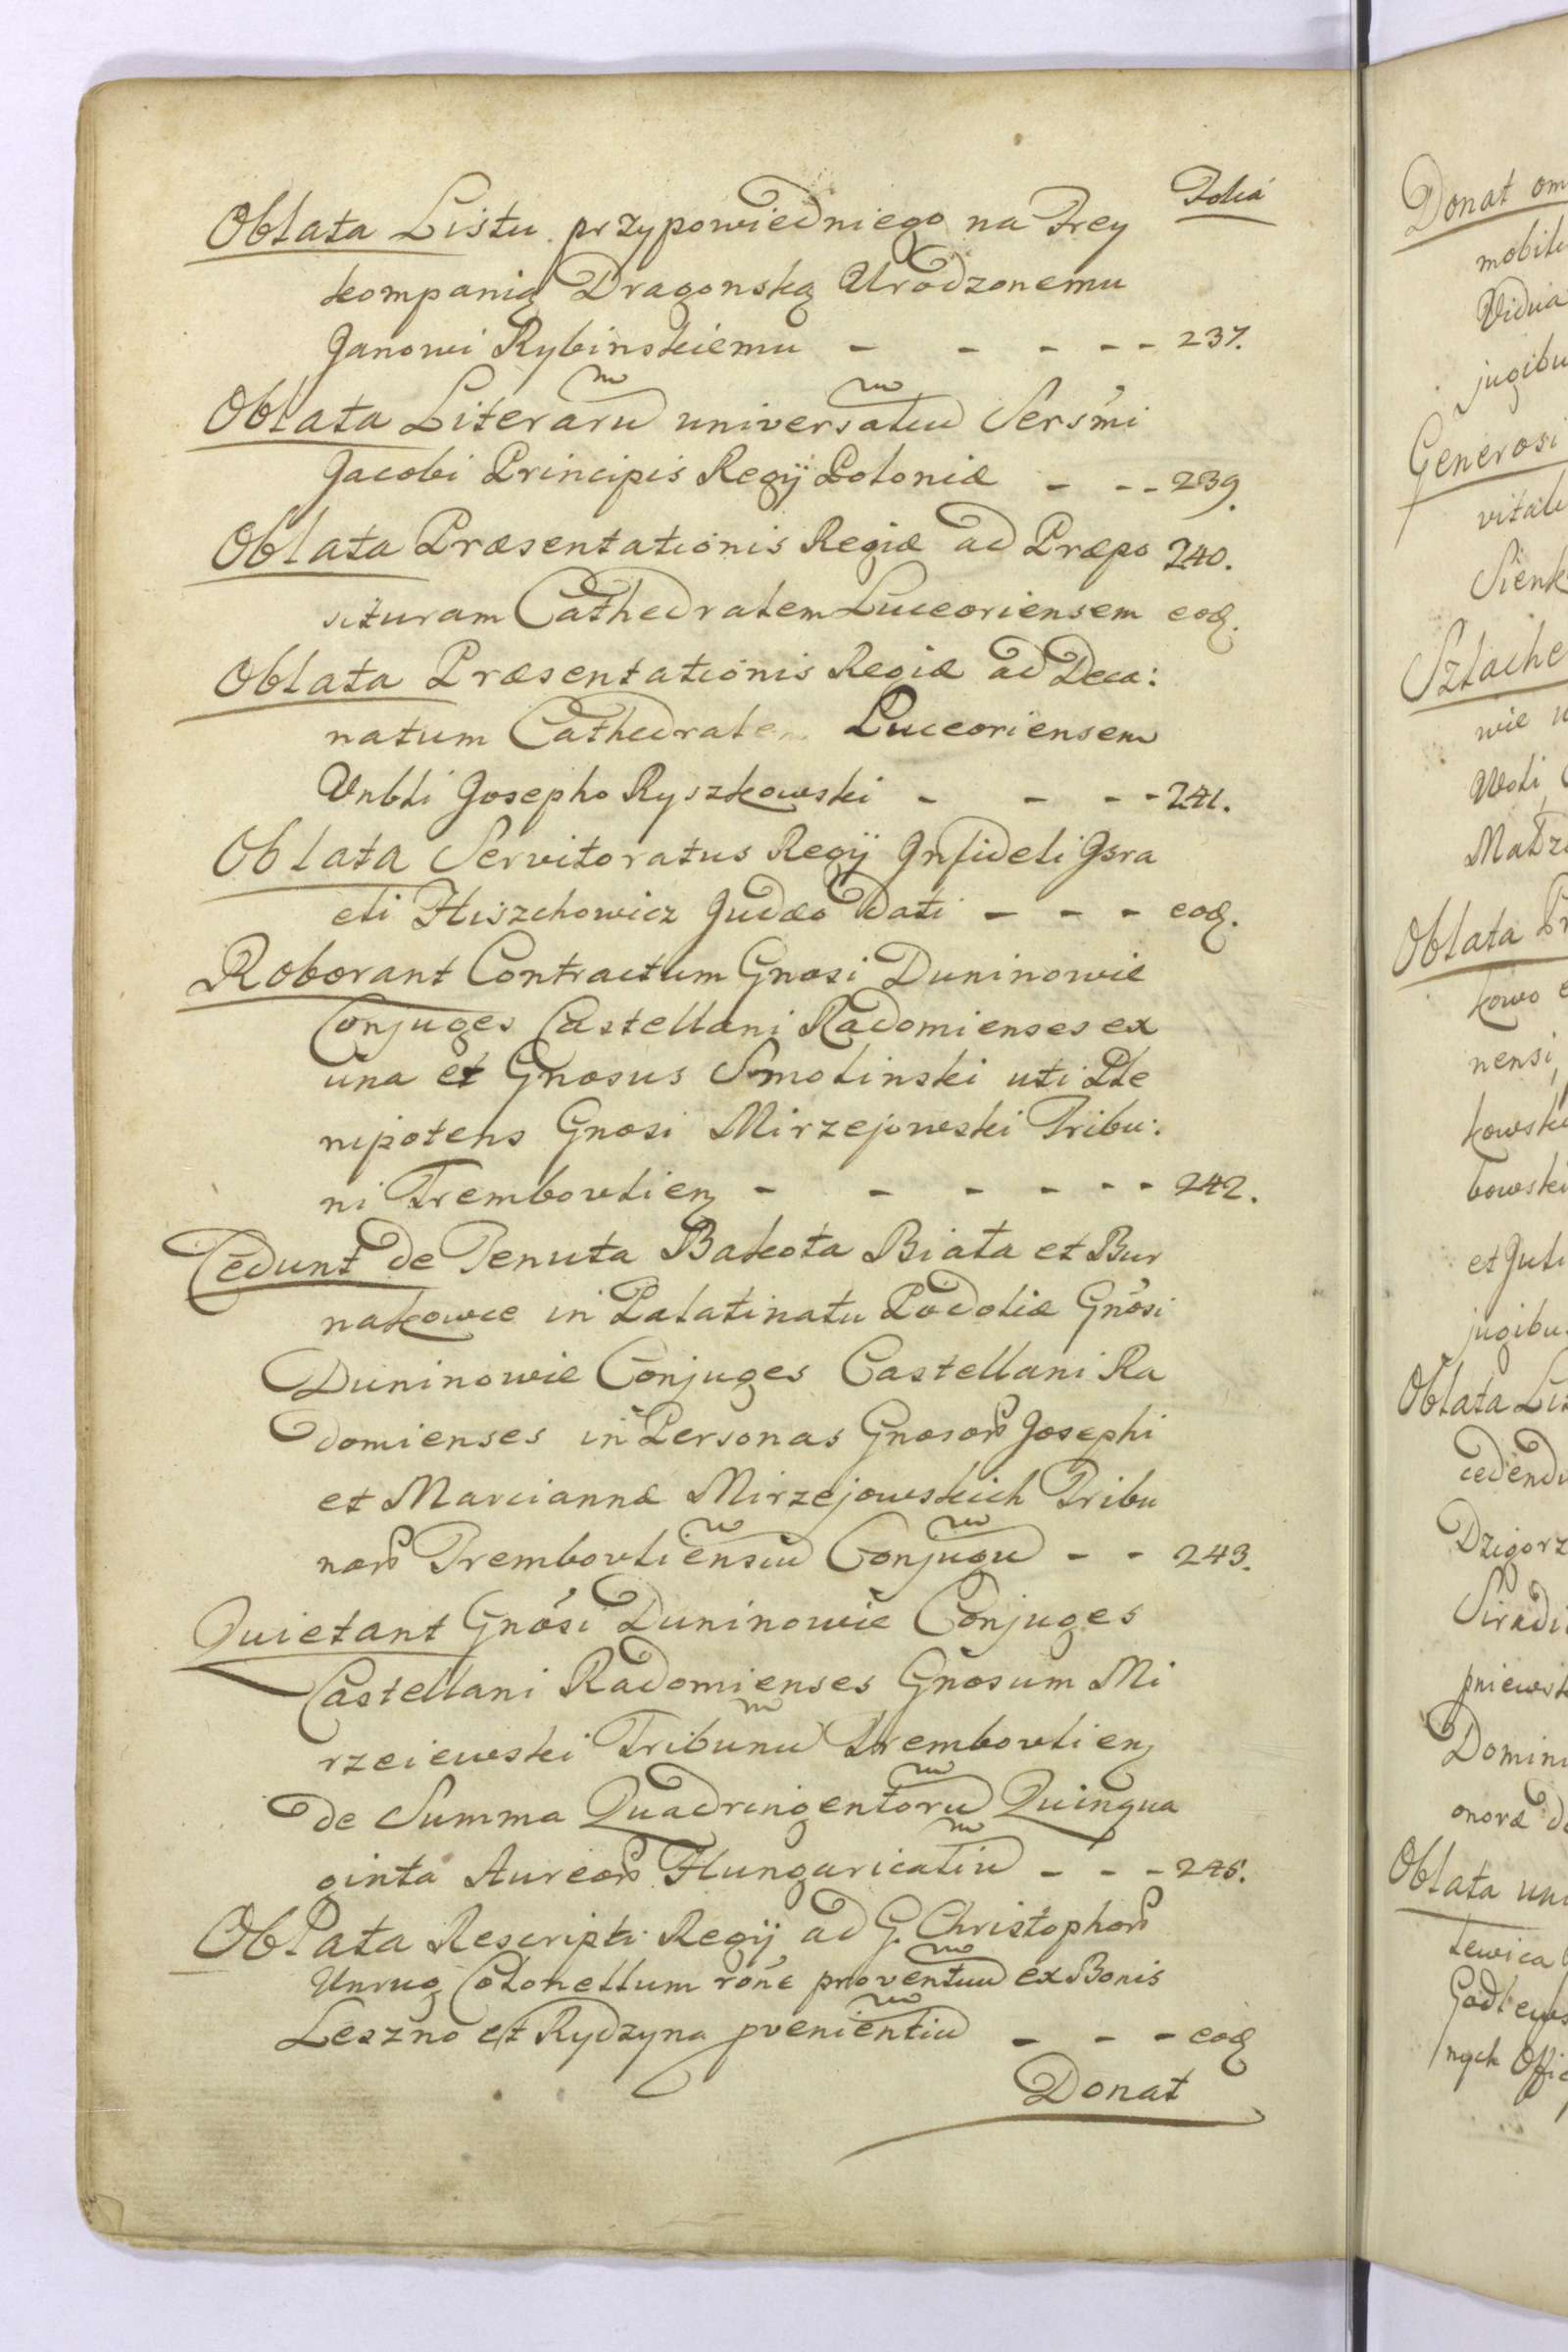 Folia
Oblata Listu przypowiedniego na Frey
kompanią Dragonską Urodzonemu
Janowi Rybinskiemu - - - - - 237.
Oblata Literarũ universaliũ Sersmi
Jacobi Principis Regij Poloniæ - - - 239.
Oblata Præsentationis Regiæ ad Præpo 240.
situram Cathedralem Luceoriensem eoḍ.
Oblata Præsentationis Regiæ ad Deca:
natum Cathedralem Luceoriensem
Vnbli Josepho Ryszkowski - - - - 241.
Oblata Servitoratus Regij Infideli Isra
eli Hiszchowicz Judæo Dati - - - eoḍ.
Roborant Contractum Gnosi Duninowie
Conjuges Castellani Radomienses ex
una et Gnosus Smolinski uti Ple
nipotens Gnosi Mirzejowski Tribu:
ni Trembovlien - - - - - - 242.
Cedunt de Tenuta Bakota Biała et Bur
nakowce in Palatinatu Podoliæ Gnosi
Duninowie Conjuges Castellani Ra
domienses in Personas Gnosoꝝ Josephi
et Mariannæ Mirzejowskich Tribu
noꝝ Trembovliensiũ Conjugũ - - 243.
Quietant Gnosi Duninowie Conjuges
Castellani Radomienses Gnosum Mi
rzeiewski Tribunũ Trembovlien
de Summa Quadringentorũ Quinqua
ginta Aureoꝝ Hungaricaliũ - - - 245.
Oblata Rescripti Regij ad G. Christophoꝝ
Unrug Colonellum rõne proventuũ ex Bonis
Leszno et Rydzyna pvenientiũ - - - eoḍ
Donat
Donat om
mobili
Vidua
jugibu
Generosi
vitali
Sienk
Szlache
wie
Woli
Oblata Pr
kowo
nensi
kowski
bowski
et Juli
jugibu
Oblata Lis
cedend
Dzigorz
Siradi
pniewsk
Domini
onoræ
Oblata uni
tewica
nych Offic